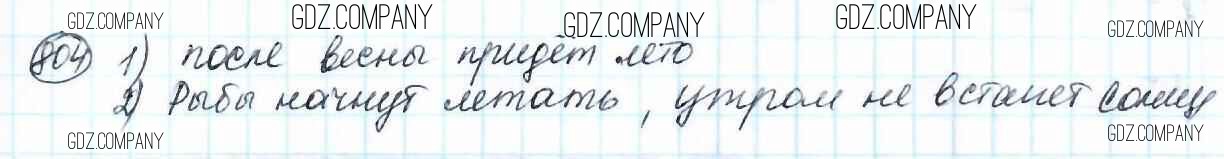 GDZ.COMPANY GDZ.COMPANY GDZ.COMPANY GDZ.COMPANY GDZ.COMPANY
804 1) после весны придёт лето
2) Рыбы начнут летать, утром не встанет солнц
GDZ.COMPANY GDZ.COMPANY